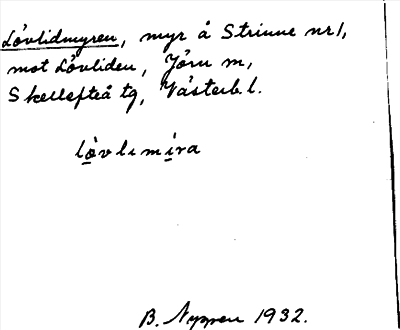 Lövlidmyren, myr å Strinne nr 1,
mot Lövliden, Jörn sn,
Skellefteå tg, Västerb. l.
lòvlimíra
B. Nyppen 1932.